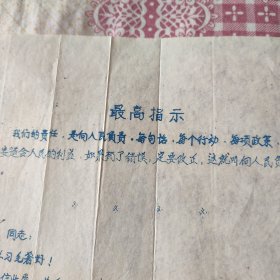 最高指示
我们的责任，是向人民负责，每句话，每个行动，每项政策，
要适合人民的利益，如果犯了错误，定要改正，这就叫向人民负
同志：
习毛著好！